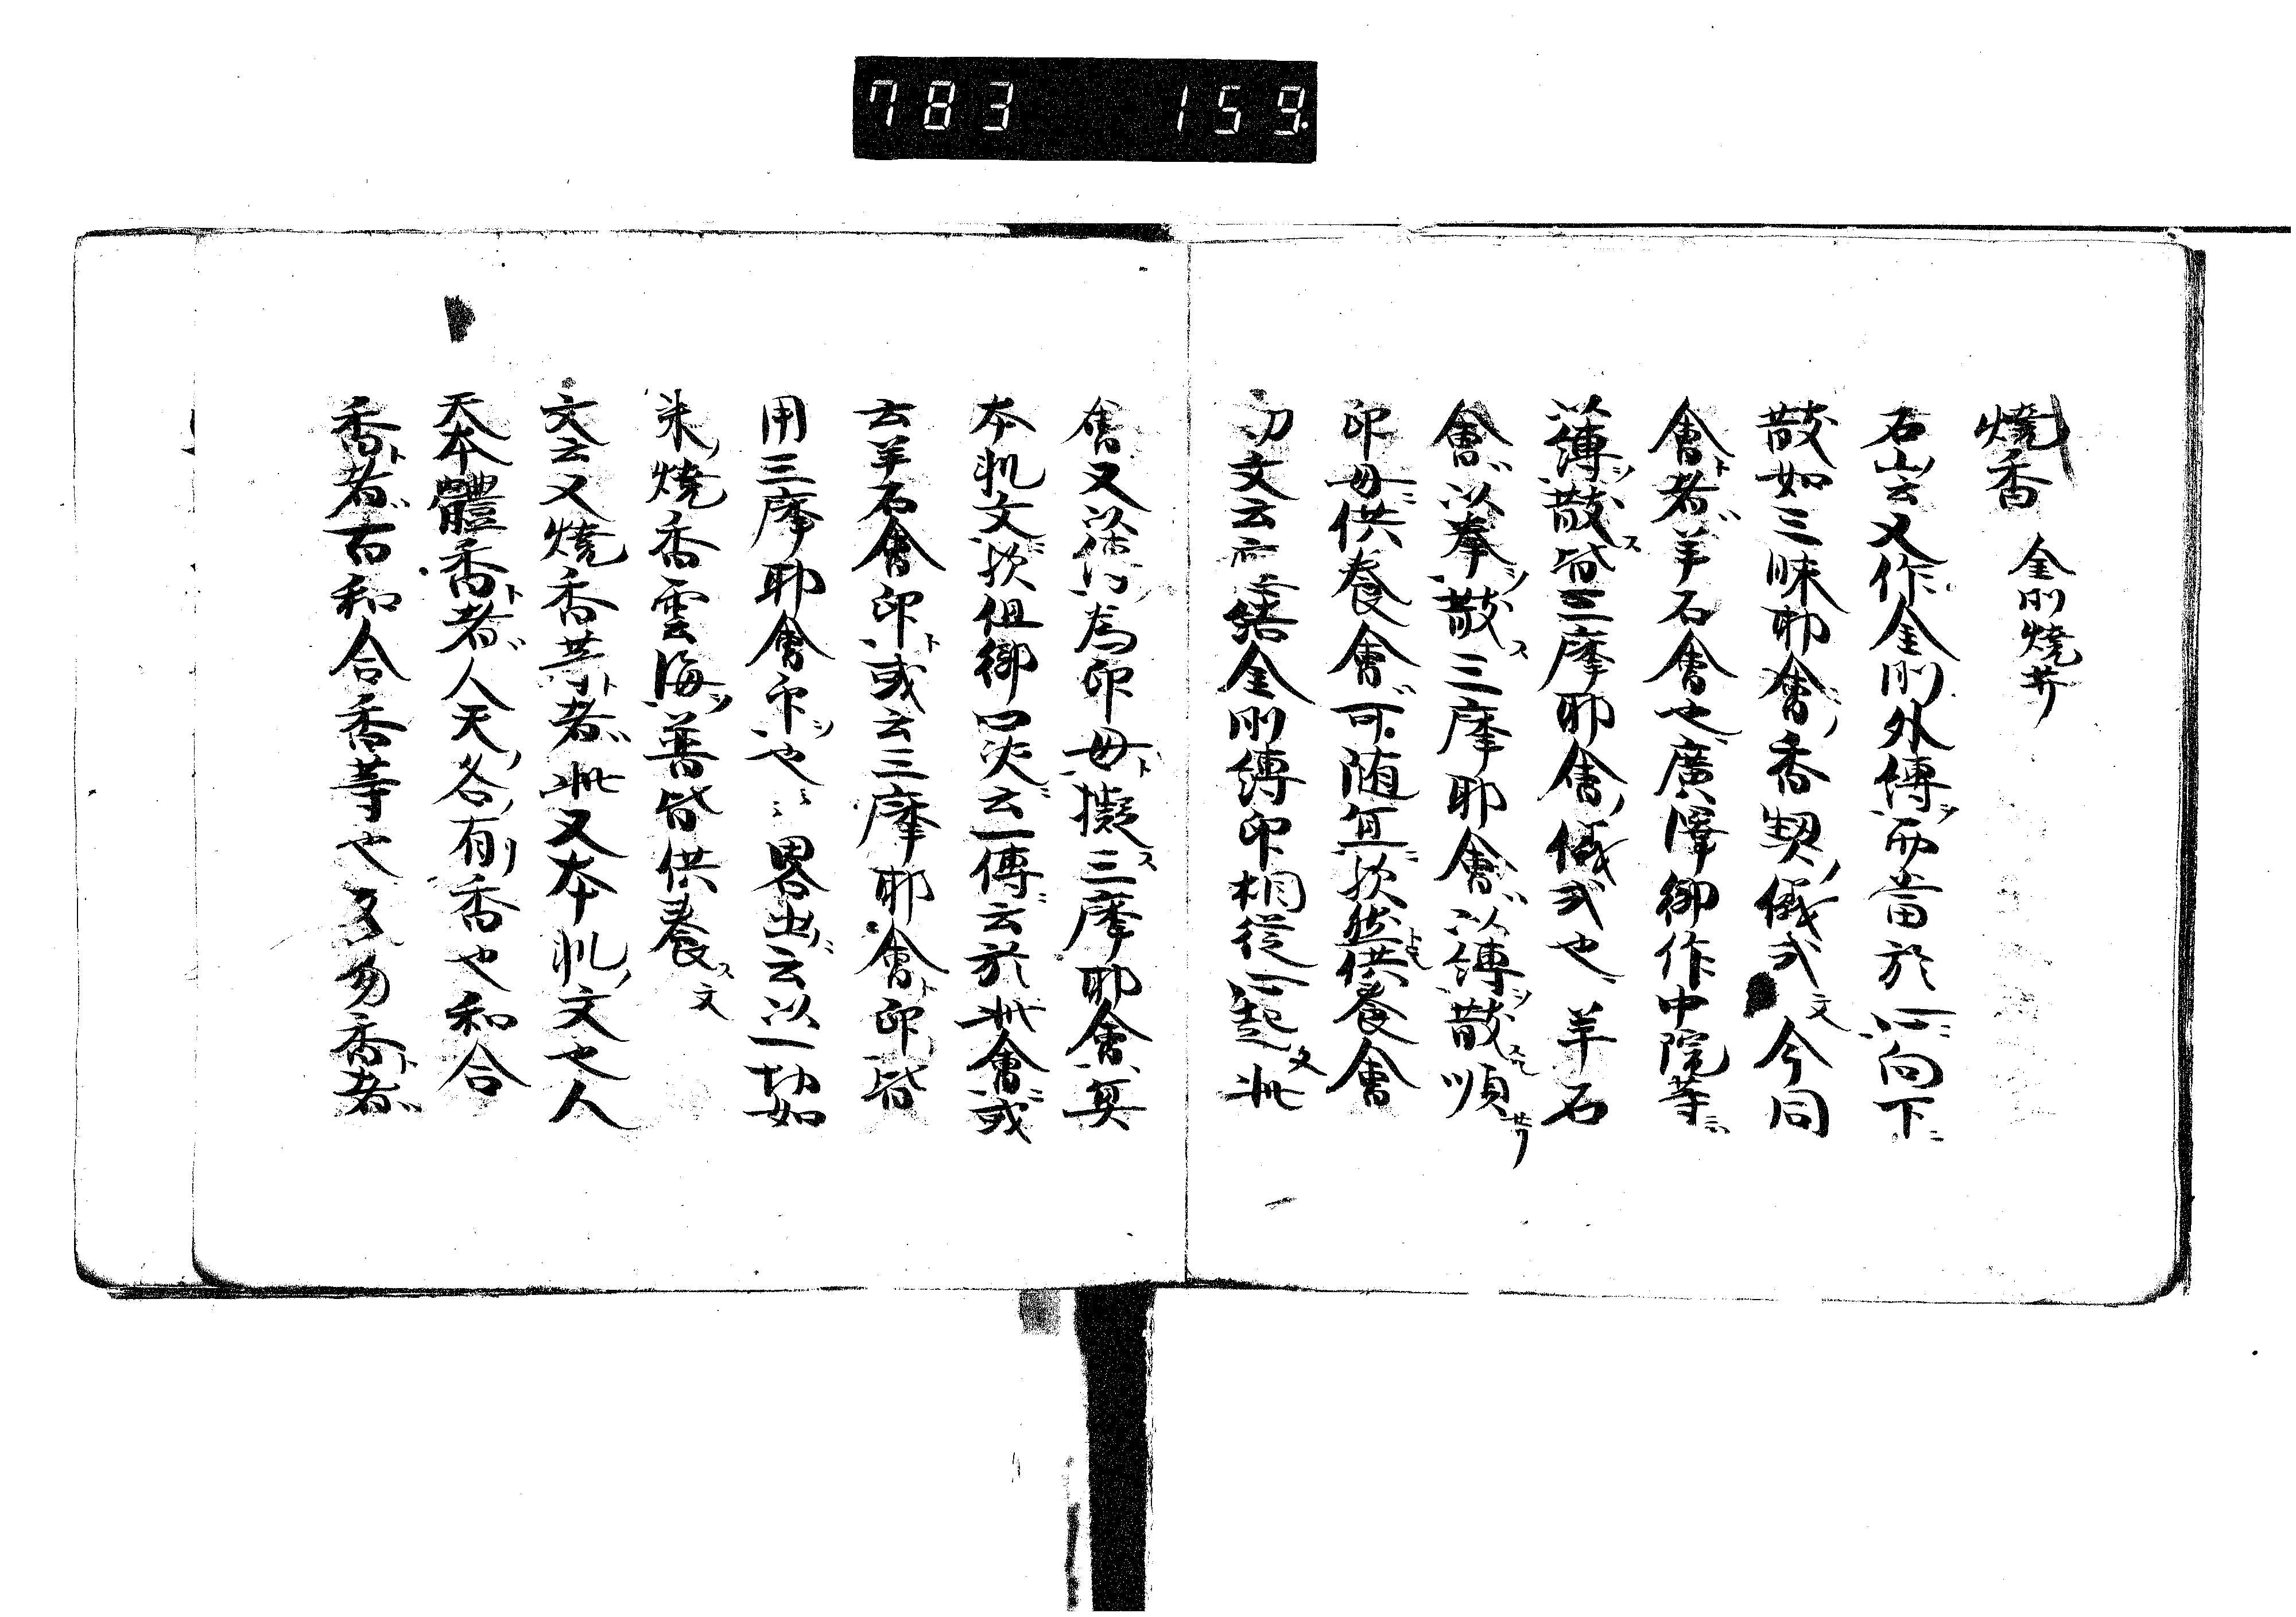 783 159
燒香 金剛燒𦬇
石山云又作金剛外縛而當於心向下
散如三昧耶會香契儀式文 今同
會者羊石會也廣澤御作中院等
以薄散皆三摩耶會儀式也 羊石
會以拳散三摩耶會以縛散順
印母供養會可随宜欤然供養會
初文云結金剛縛印相從心起文 此
會又為印母擬三摩耶會
本軌文欤但御口决云一傳云於此會或
云羊石會印或云三摩耶會印皆
用三摩耶會印也 畧出云以一切如
来燒香雲海普皆供養文
文云又燒香等者此又本軌文也人
天本體香者人天各有香也和合
香者百和合香等也 勿香者